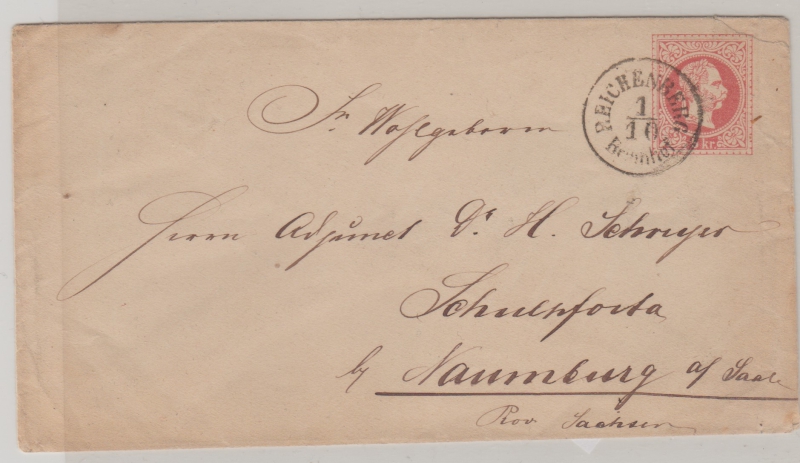 REICHENBERG
1
10
Bahnhof
kr.
Sr. Wohlgeboren
Herrn Adjunct Dr. H. Schreyer
Schulpforta
by Naumburg a/ Saale
Prov. Sachsen